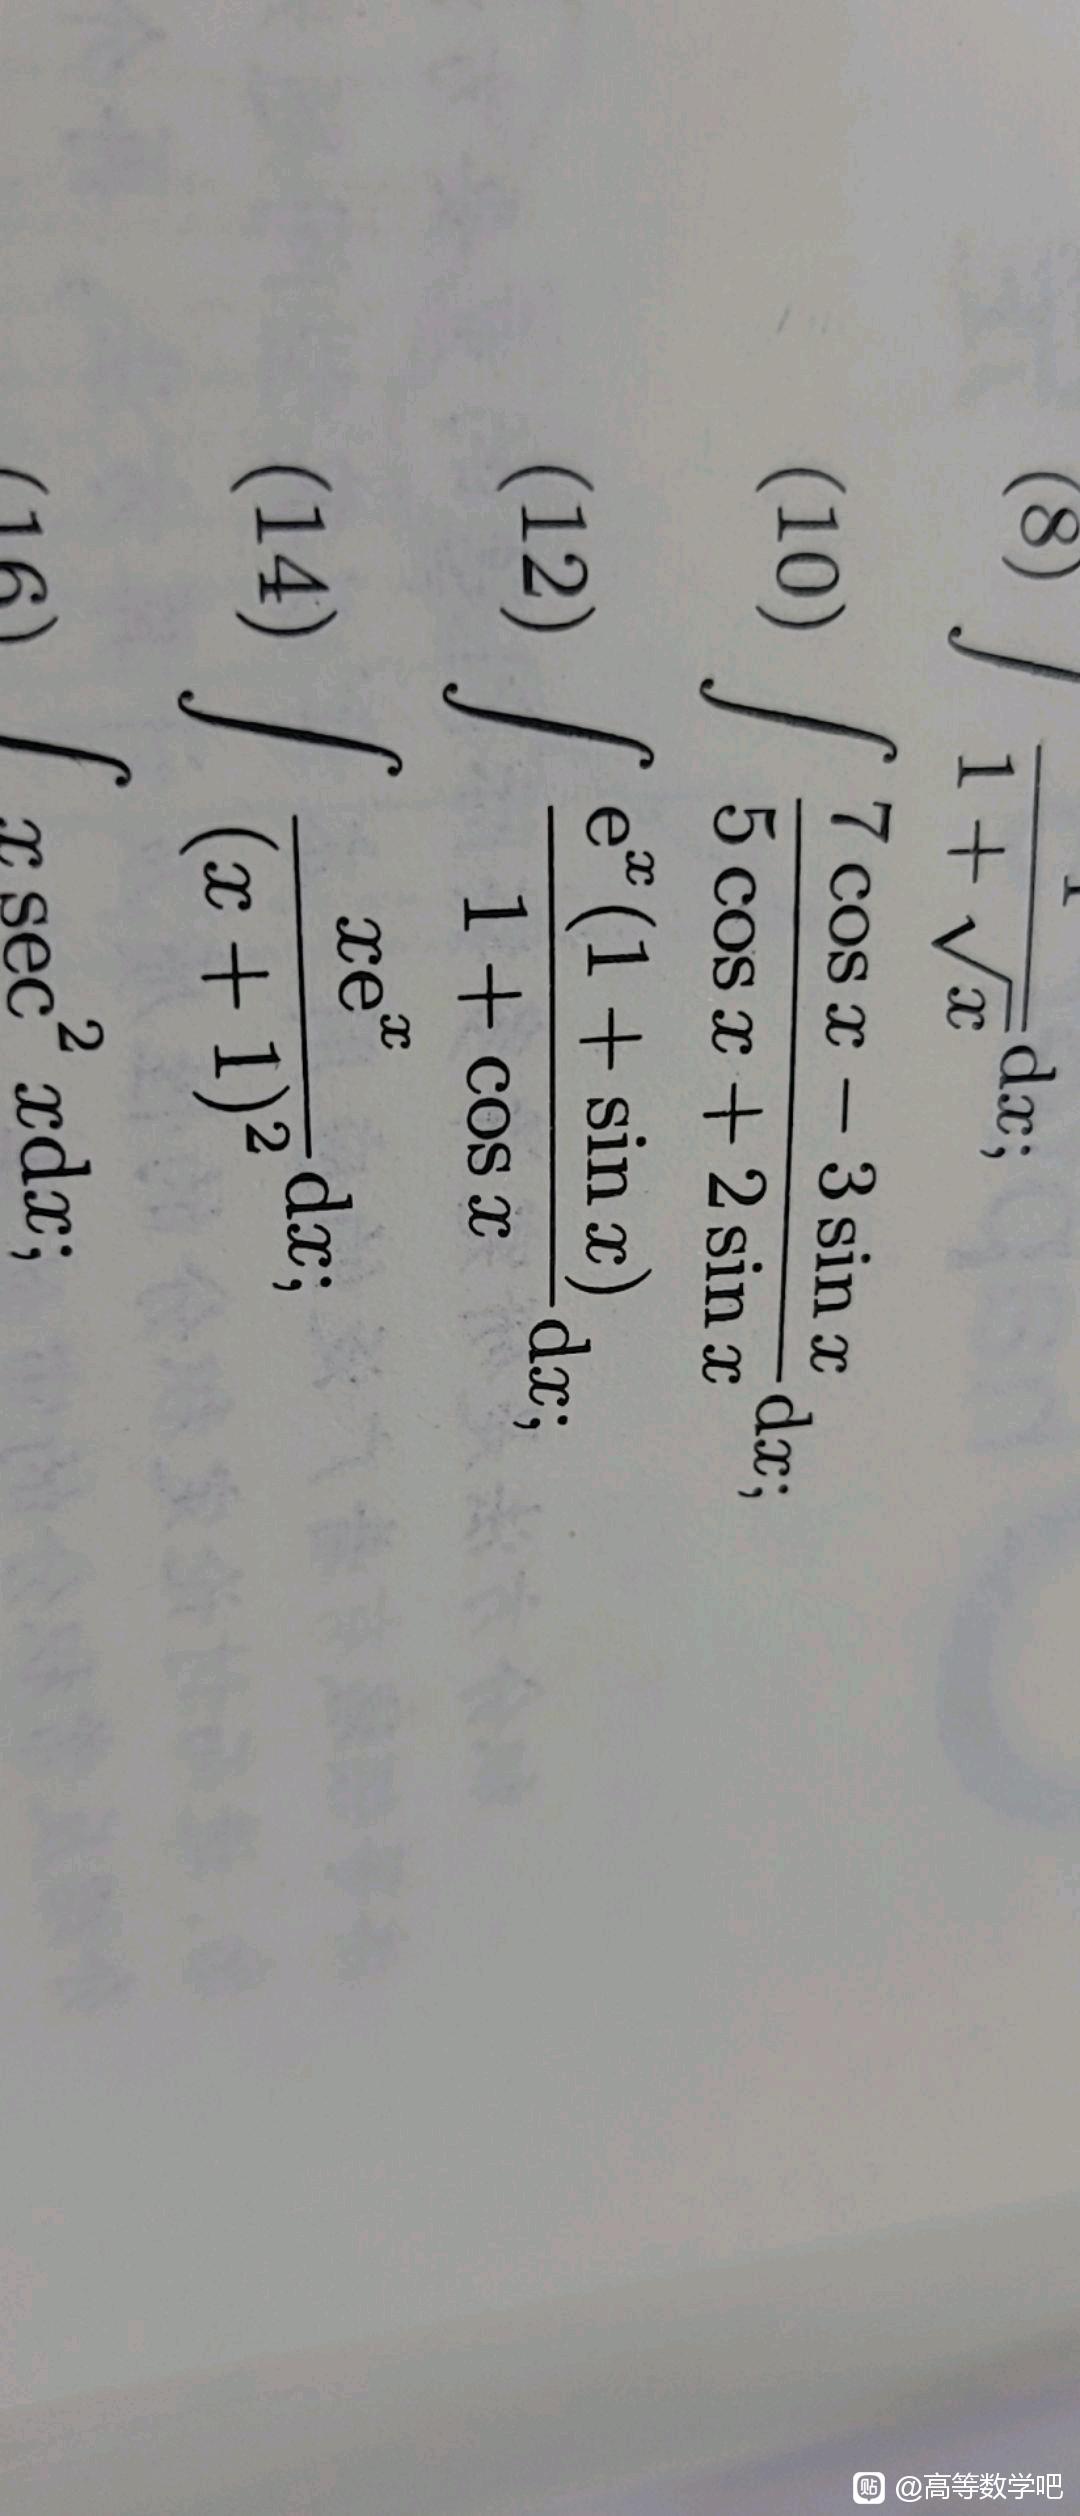 (8) ∫ 1/(1 + √x) dx;
(10) ∫ (7 cos x − 3 sin x)/(5 cos x + 2 sin x) dx;
(12) ∫ eˣ(1 + sin x)/(1 + cos x) dx;
(14) ∫ xeˣ/(x + 1)² dx;
(16) ∫ x sec² xdx;
贴 @高等数学吧